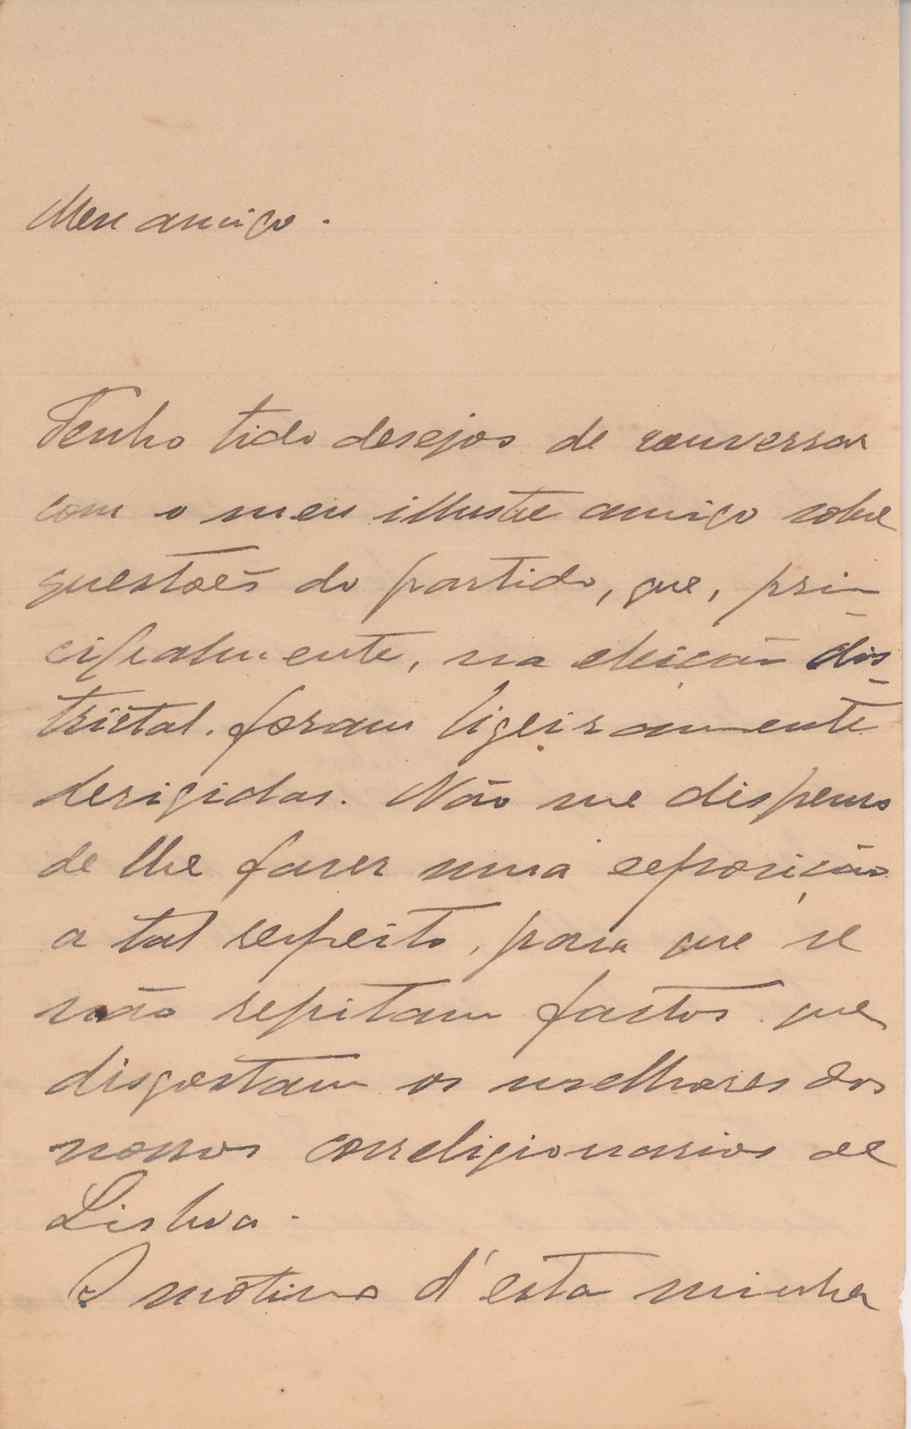 Meu amigo.
Tenho tido desejos de conversar
com o meu illustre amigo sobre
questões do partido, que, prin-
cipalmente, na eleição dis-
trictal. foram ligeiramente
derigidas. Não me dispenso
de lhe fazer uma exposição
a tal respeito, para que se
não repitam factos que
disgostam os melhores dos
nossos correligionarios de
Lisboa.
O motivo d'esta minha